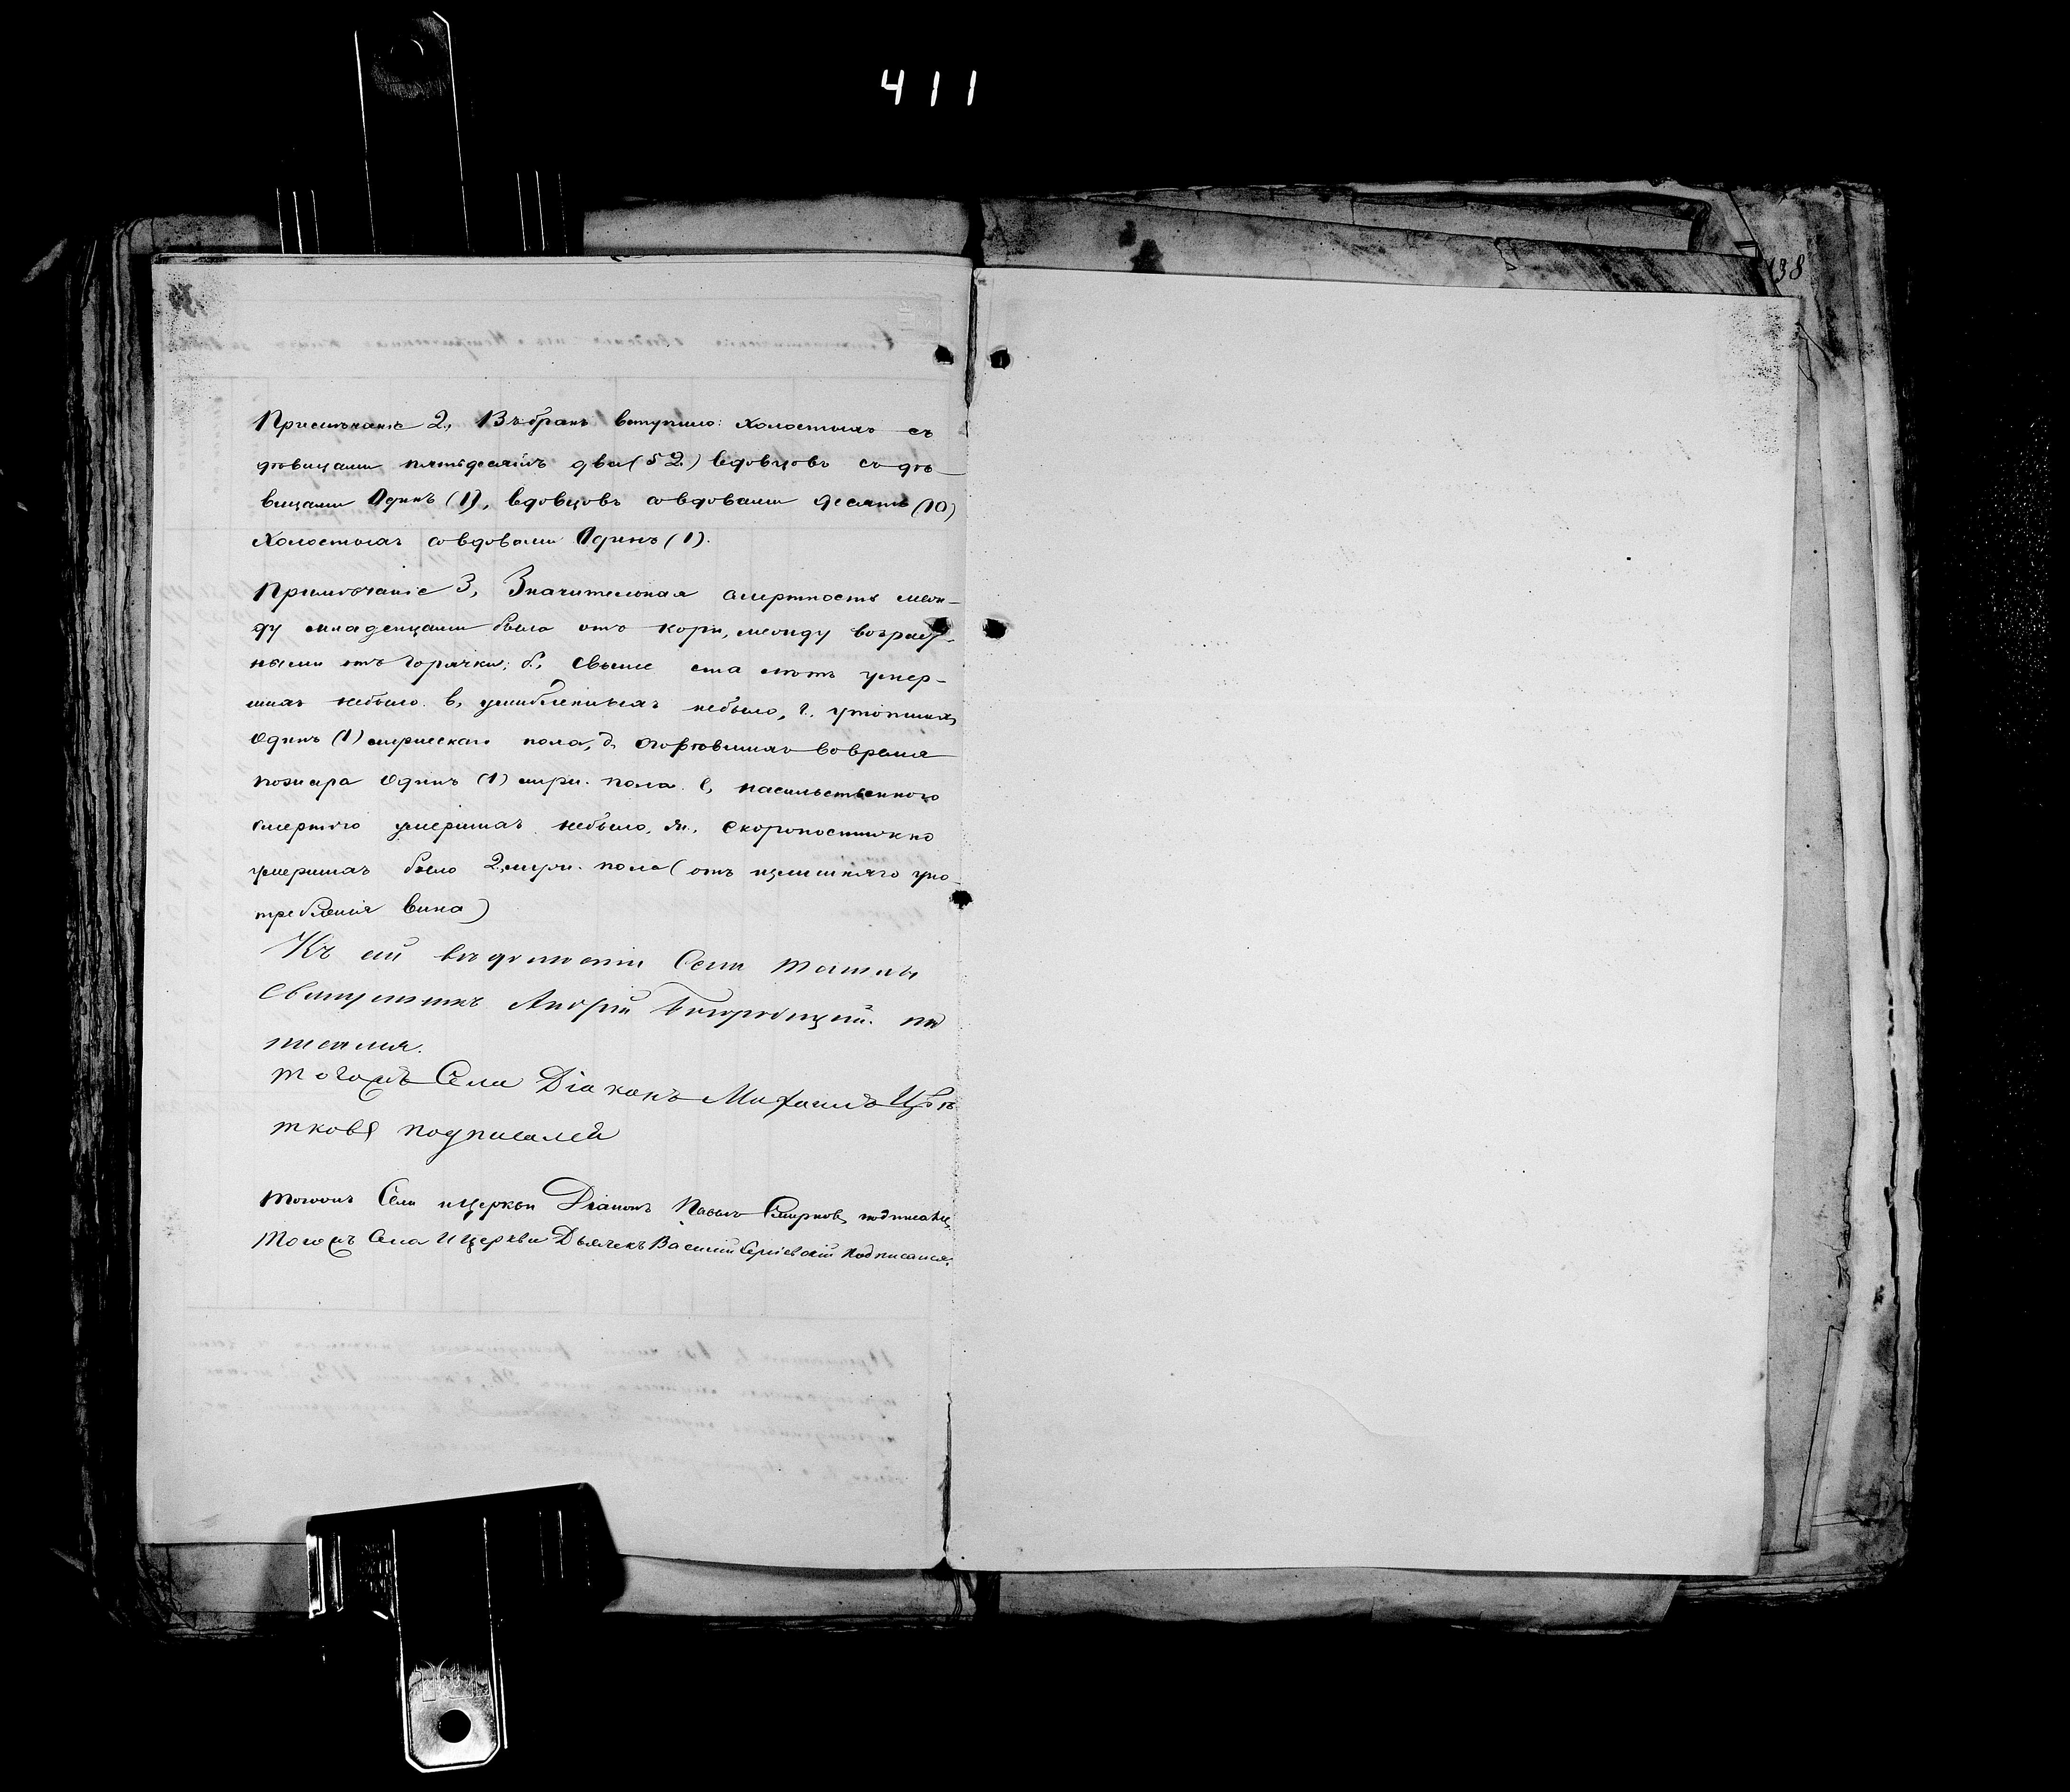 411
138
Примѣчаніе 2, Въ бракъ вступило: холостыхъ съ
дѣвицами пятьдесятъ два (52) вдовцовъ съ дѣ-
вицами Одинъ (1), вдовцовъ совдовами десять (10)
Холостыхъ совдовами Одинъ (1).
Примѣчаніе 3, Значительная смертность меж-
ду младенцами была отъ кори, между возраст-
ными отъ горячки; б, свыше ста лѣтъ умер-
шихъ небыло. в, ушибленныхъ небыло, г, утопшихъ
Одинъ (1) мужескаго пола, д, сгорѣвшихъ вовремя
пожара Одинъ (1) муж. пола. е, насильственною
смертію умершихъ небыло, ж, скоропостижно
умершихъ было 2 муж. пола (отъ излишняго упо-
требленія вина)
Къ сей вѣдомости Села
Священникъ Андрей Богородицкій. под
писался.
тогожъ Села Діаконъ Михаилъ Цвѣ
тковъ подписалси
тогожъ Села и Церкви Діаконъ Павелъ Смирновъ подписалс
Тогожъ Села и Церкви Дьячекъ Василій Подписался.